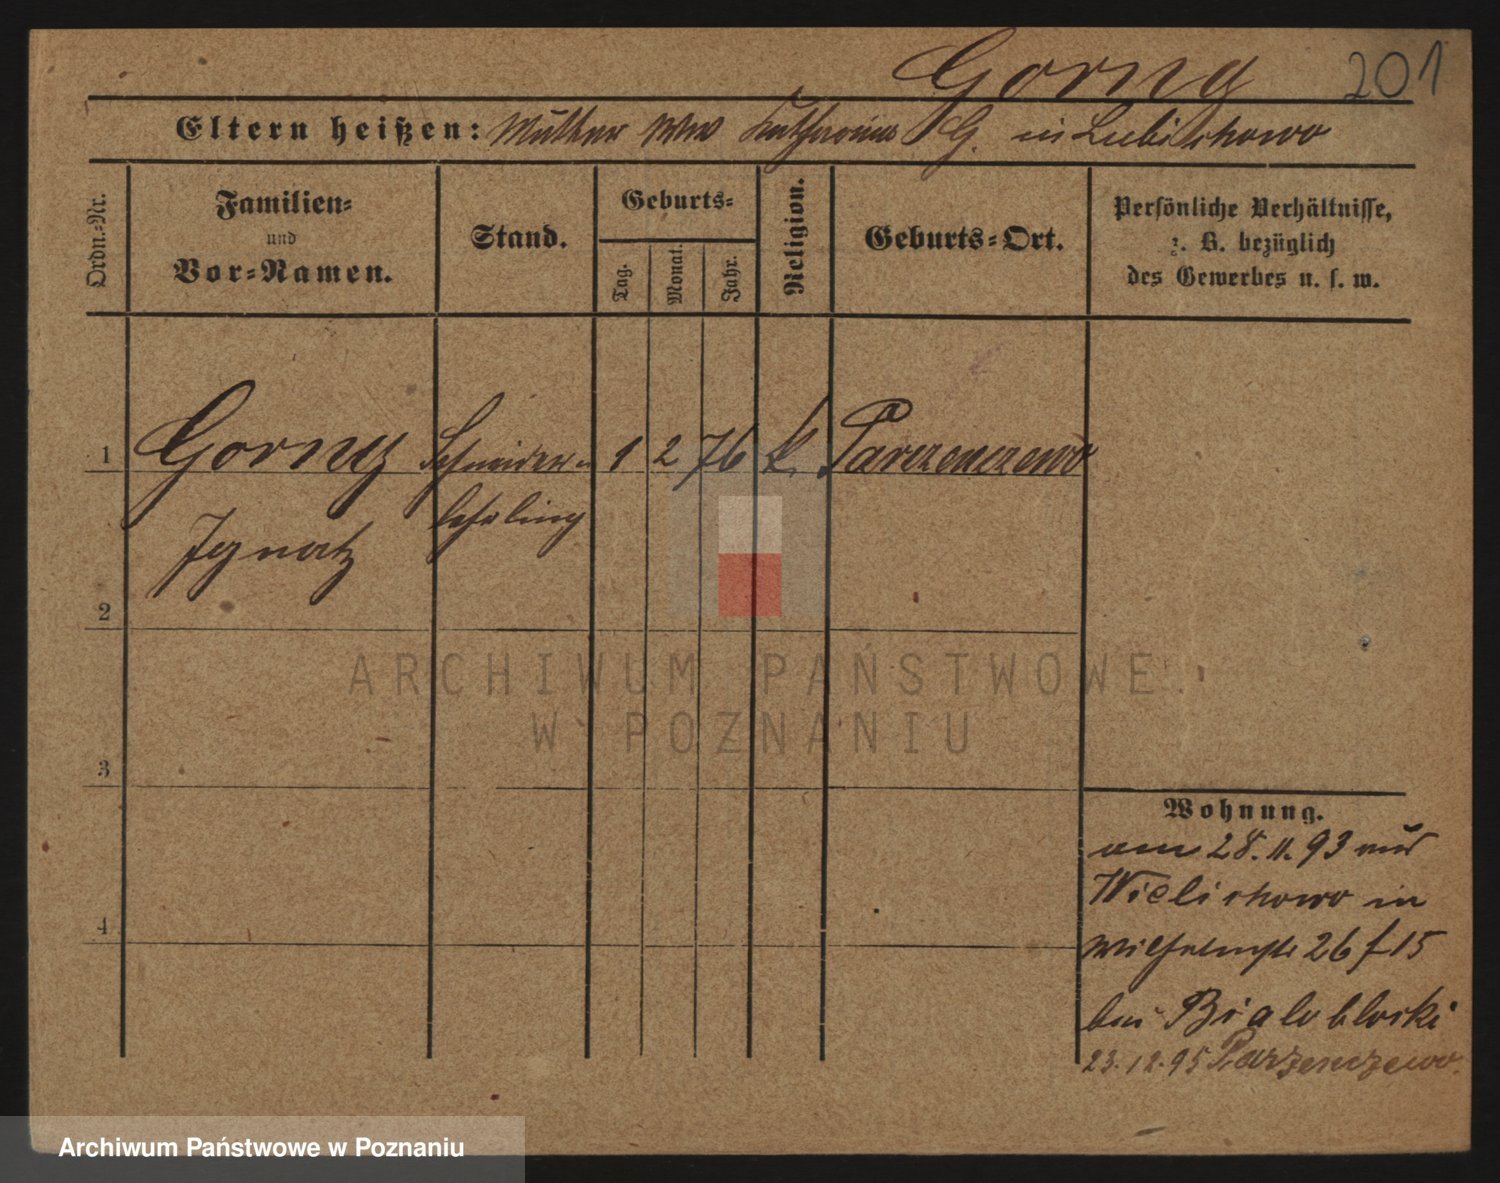 Gorny 201
Eltern heißen: Mutter Wwe Katharina G. in Lubichowo
Ordn.-Nr.
Familien-
und
Vor-Namen.
Stand.
Geburts-
Tag.
Monat.
Jahr.
Religion.
Geburts-Ort.
Persönliche Verhältnisse,
z. B. bezüglich
des Gewerbes u. s. w.
1 Gorny Schneider 1 2 76 k. Parzenczewo
Ignatz lehrling
2
3
4
Wohnung.
am 28.11.93 aus
Wielichowo in
Wilhelmstr 26 f 15
bei Bialobloski
23.12.95 Parzenczewo.
ARCHIWUM PAŃSTWOWE
W POZNANIU
Archiwum Państwowe w Poznaniu